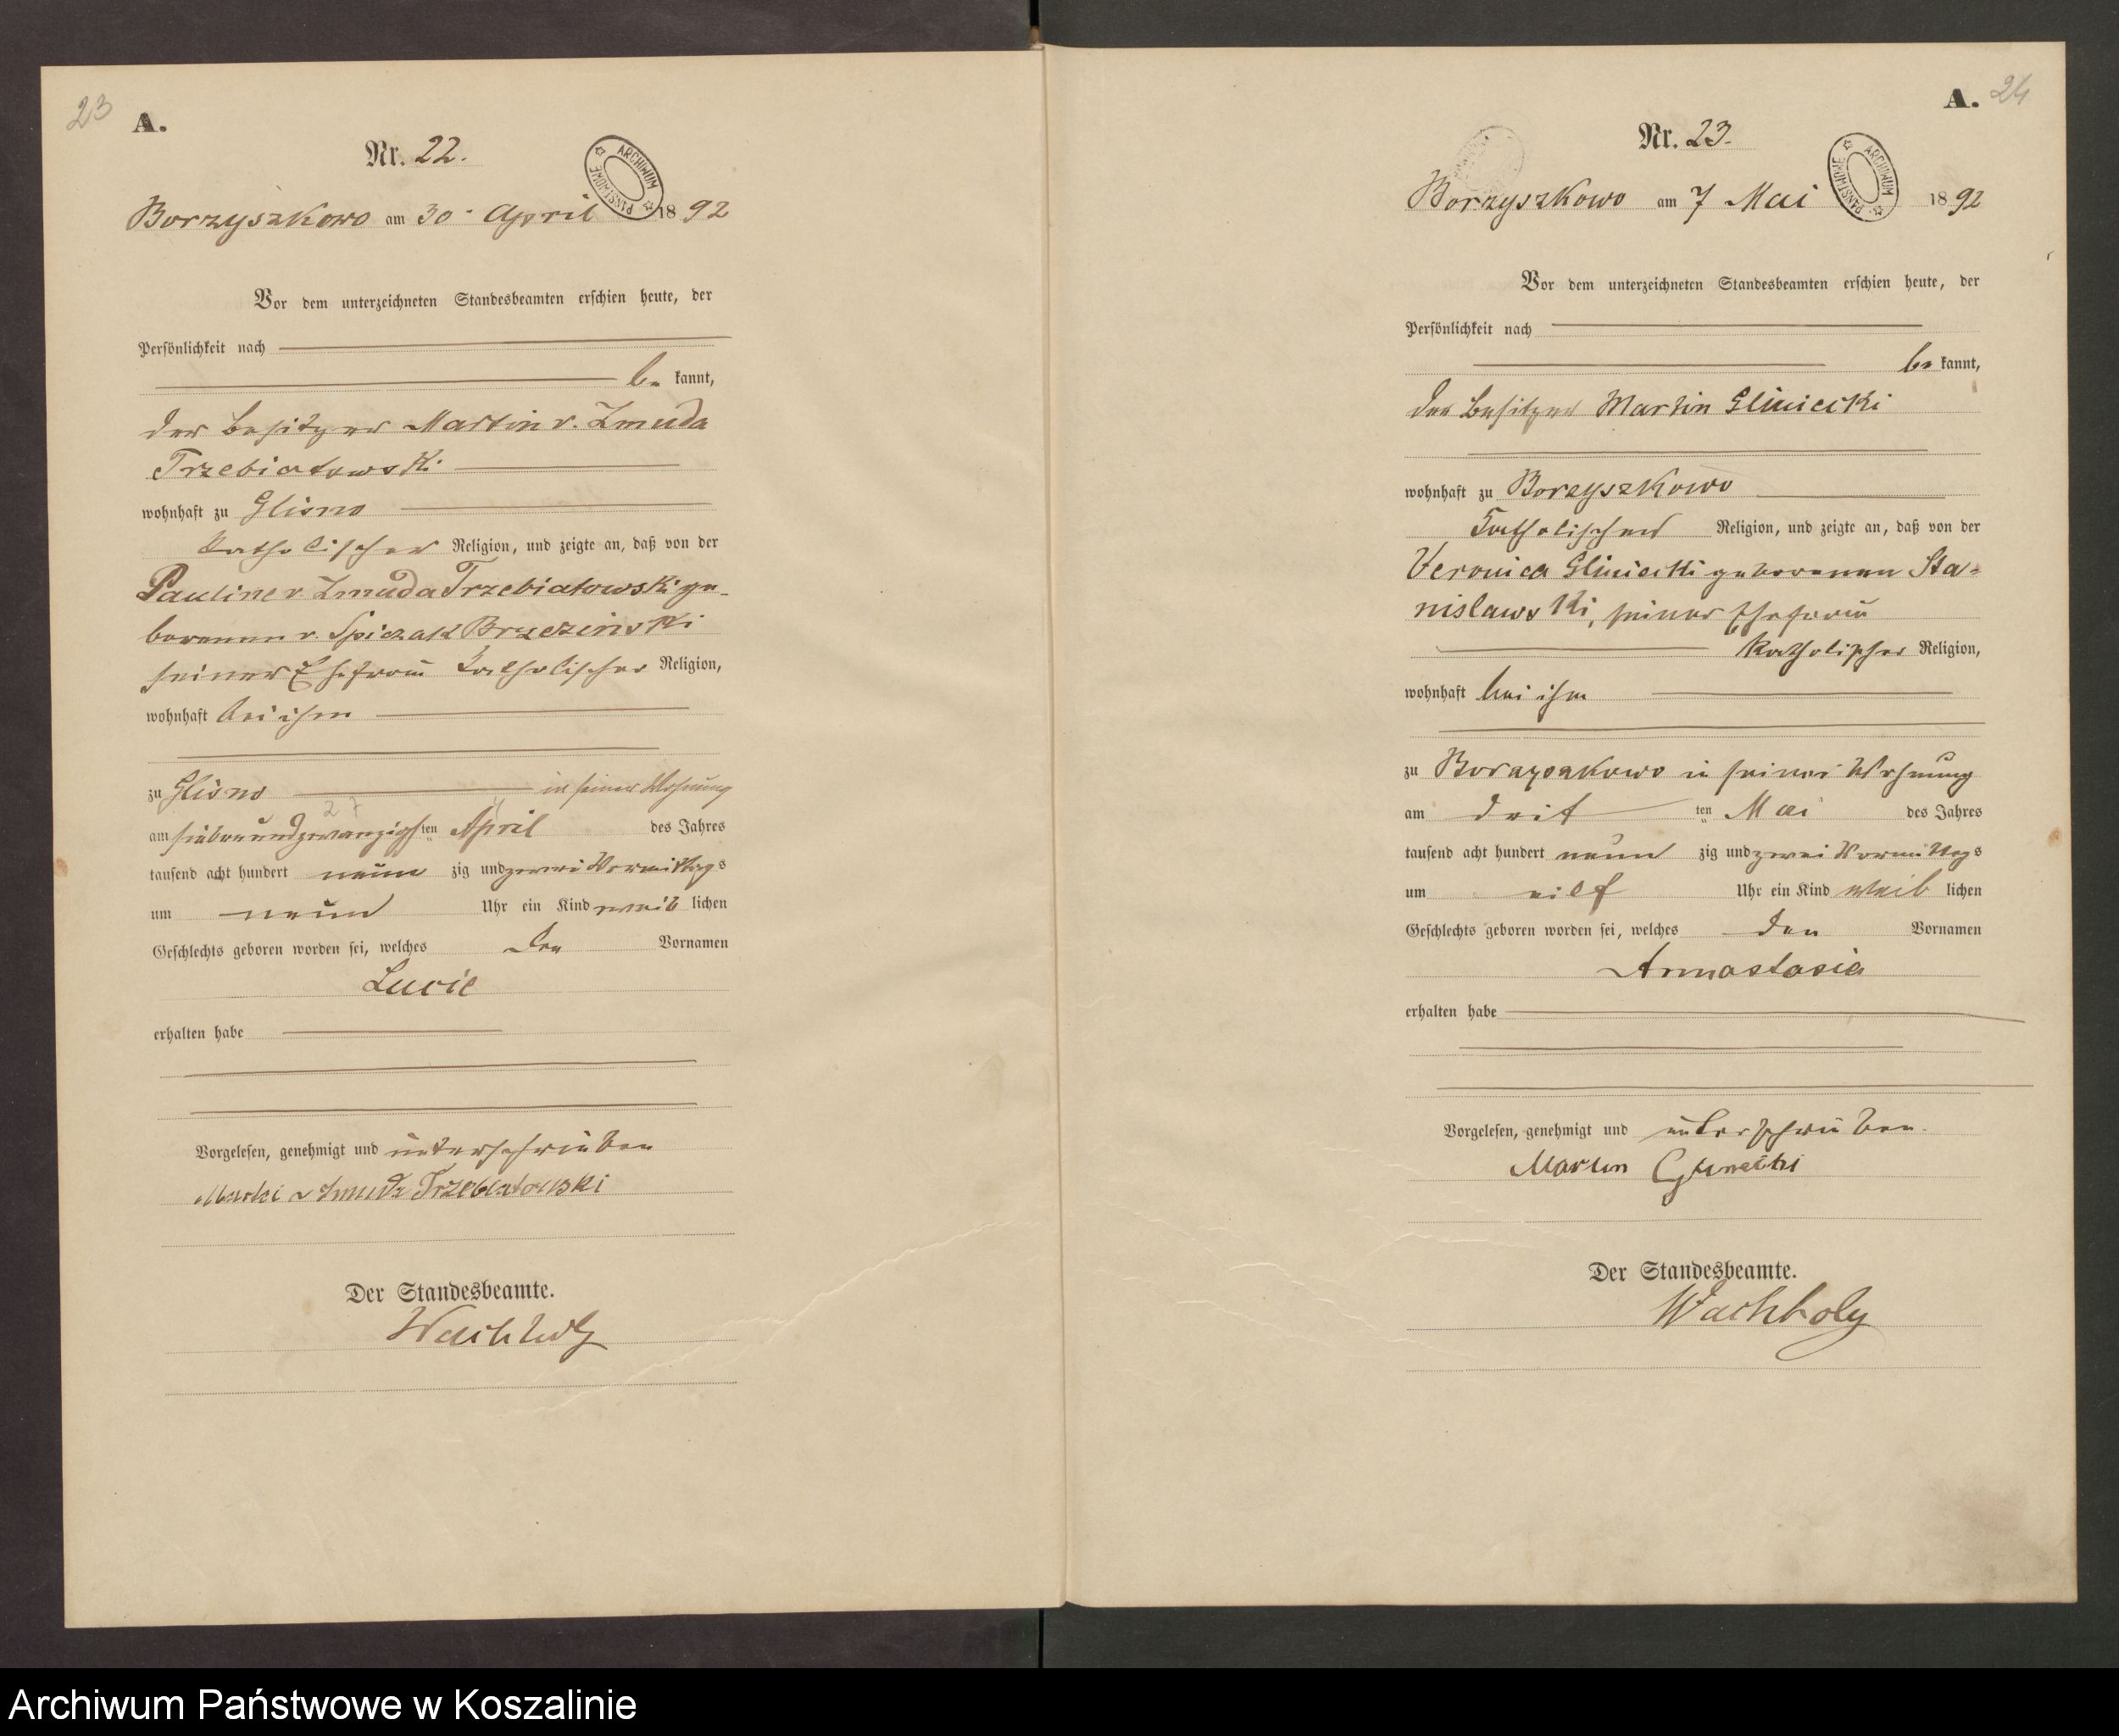 23
A.
Nr. 22.
ARCHIWUM PAŃSTWOWE
Borzyszkowo am 30. April 1892
Vor dem unterzeichneten Standesbeamten erschien heute, der
Persönlichkeit nach
be kannt,
der Besitzer Martin v. Zmuda
Trzebiatowski
wohnhaft zu Glisno
katholischer Religion, und zeigte an, daß von der
Pauline v Zmuda Trzebiatowski ge-
borenen v. Spiczak Brzezinski
seiner Ehefrau katholischer Religion,
wohnhaft bei ihm
zu Glisno in seiner Wohnung
27 4
am siebenundzwanzigsten April des Jahres
tausend acht hundert neun zig und zwei Vormittags
um neun Uhr ein Kind weib lichen
Geschlechts geboren worden sei, welches den Vornamen
Lucie
erhalten habe
Vorgelesen, genehmigt und unterschrieben
v Zmuda Trzebiatowski
Der Standesbeamte.
Wachholz
A. 24
Nr. 23.
ARCHIWUM PAŃSTWOWE
Borzyszkowo am 7 Mai 1892
Vor dem unterzeichneten Standesbeamten erschien heute, der
Persönlichkeit nach
be kannt,
der Besitzer Martin Gliniecki
wohnhaft zu Borzyszkowo
katholischer Religion, und zeigte an, daß von der
Veronica Gliniecki geborenen Sta-
nislawski, seiner Ehefrau
katholischer Religion,
wohnhaft bei ihm
zu Borzyszkowo in seiner Wohnung
am dritten Mai des Jahres
tausend acht hundert neun zig und zwei Vormittags
um eilf Uhr ein Kind weib lichen
Geschlechts geboren worden sei, welches den Vornamen
Annastasia
erhalten habe
Vorgelesen, genehmigt und unterschrieben.
Martin
Der Standesbeamte.
Wachholz
Archiwum Państwowe w Koszalinie